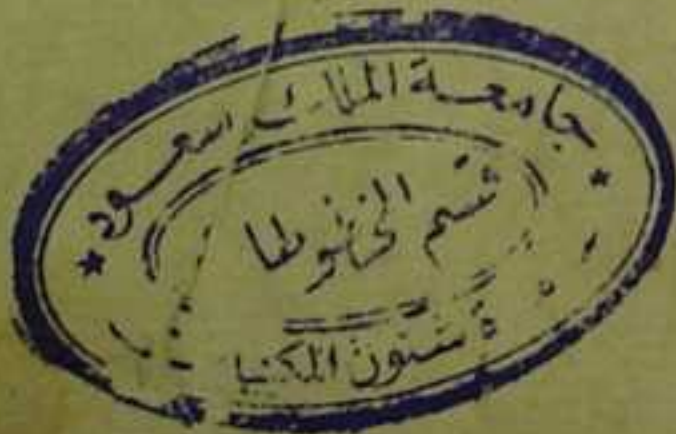 جامعة الملك سعود
قسم المخطوطا
شئون المكتبا